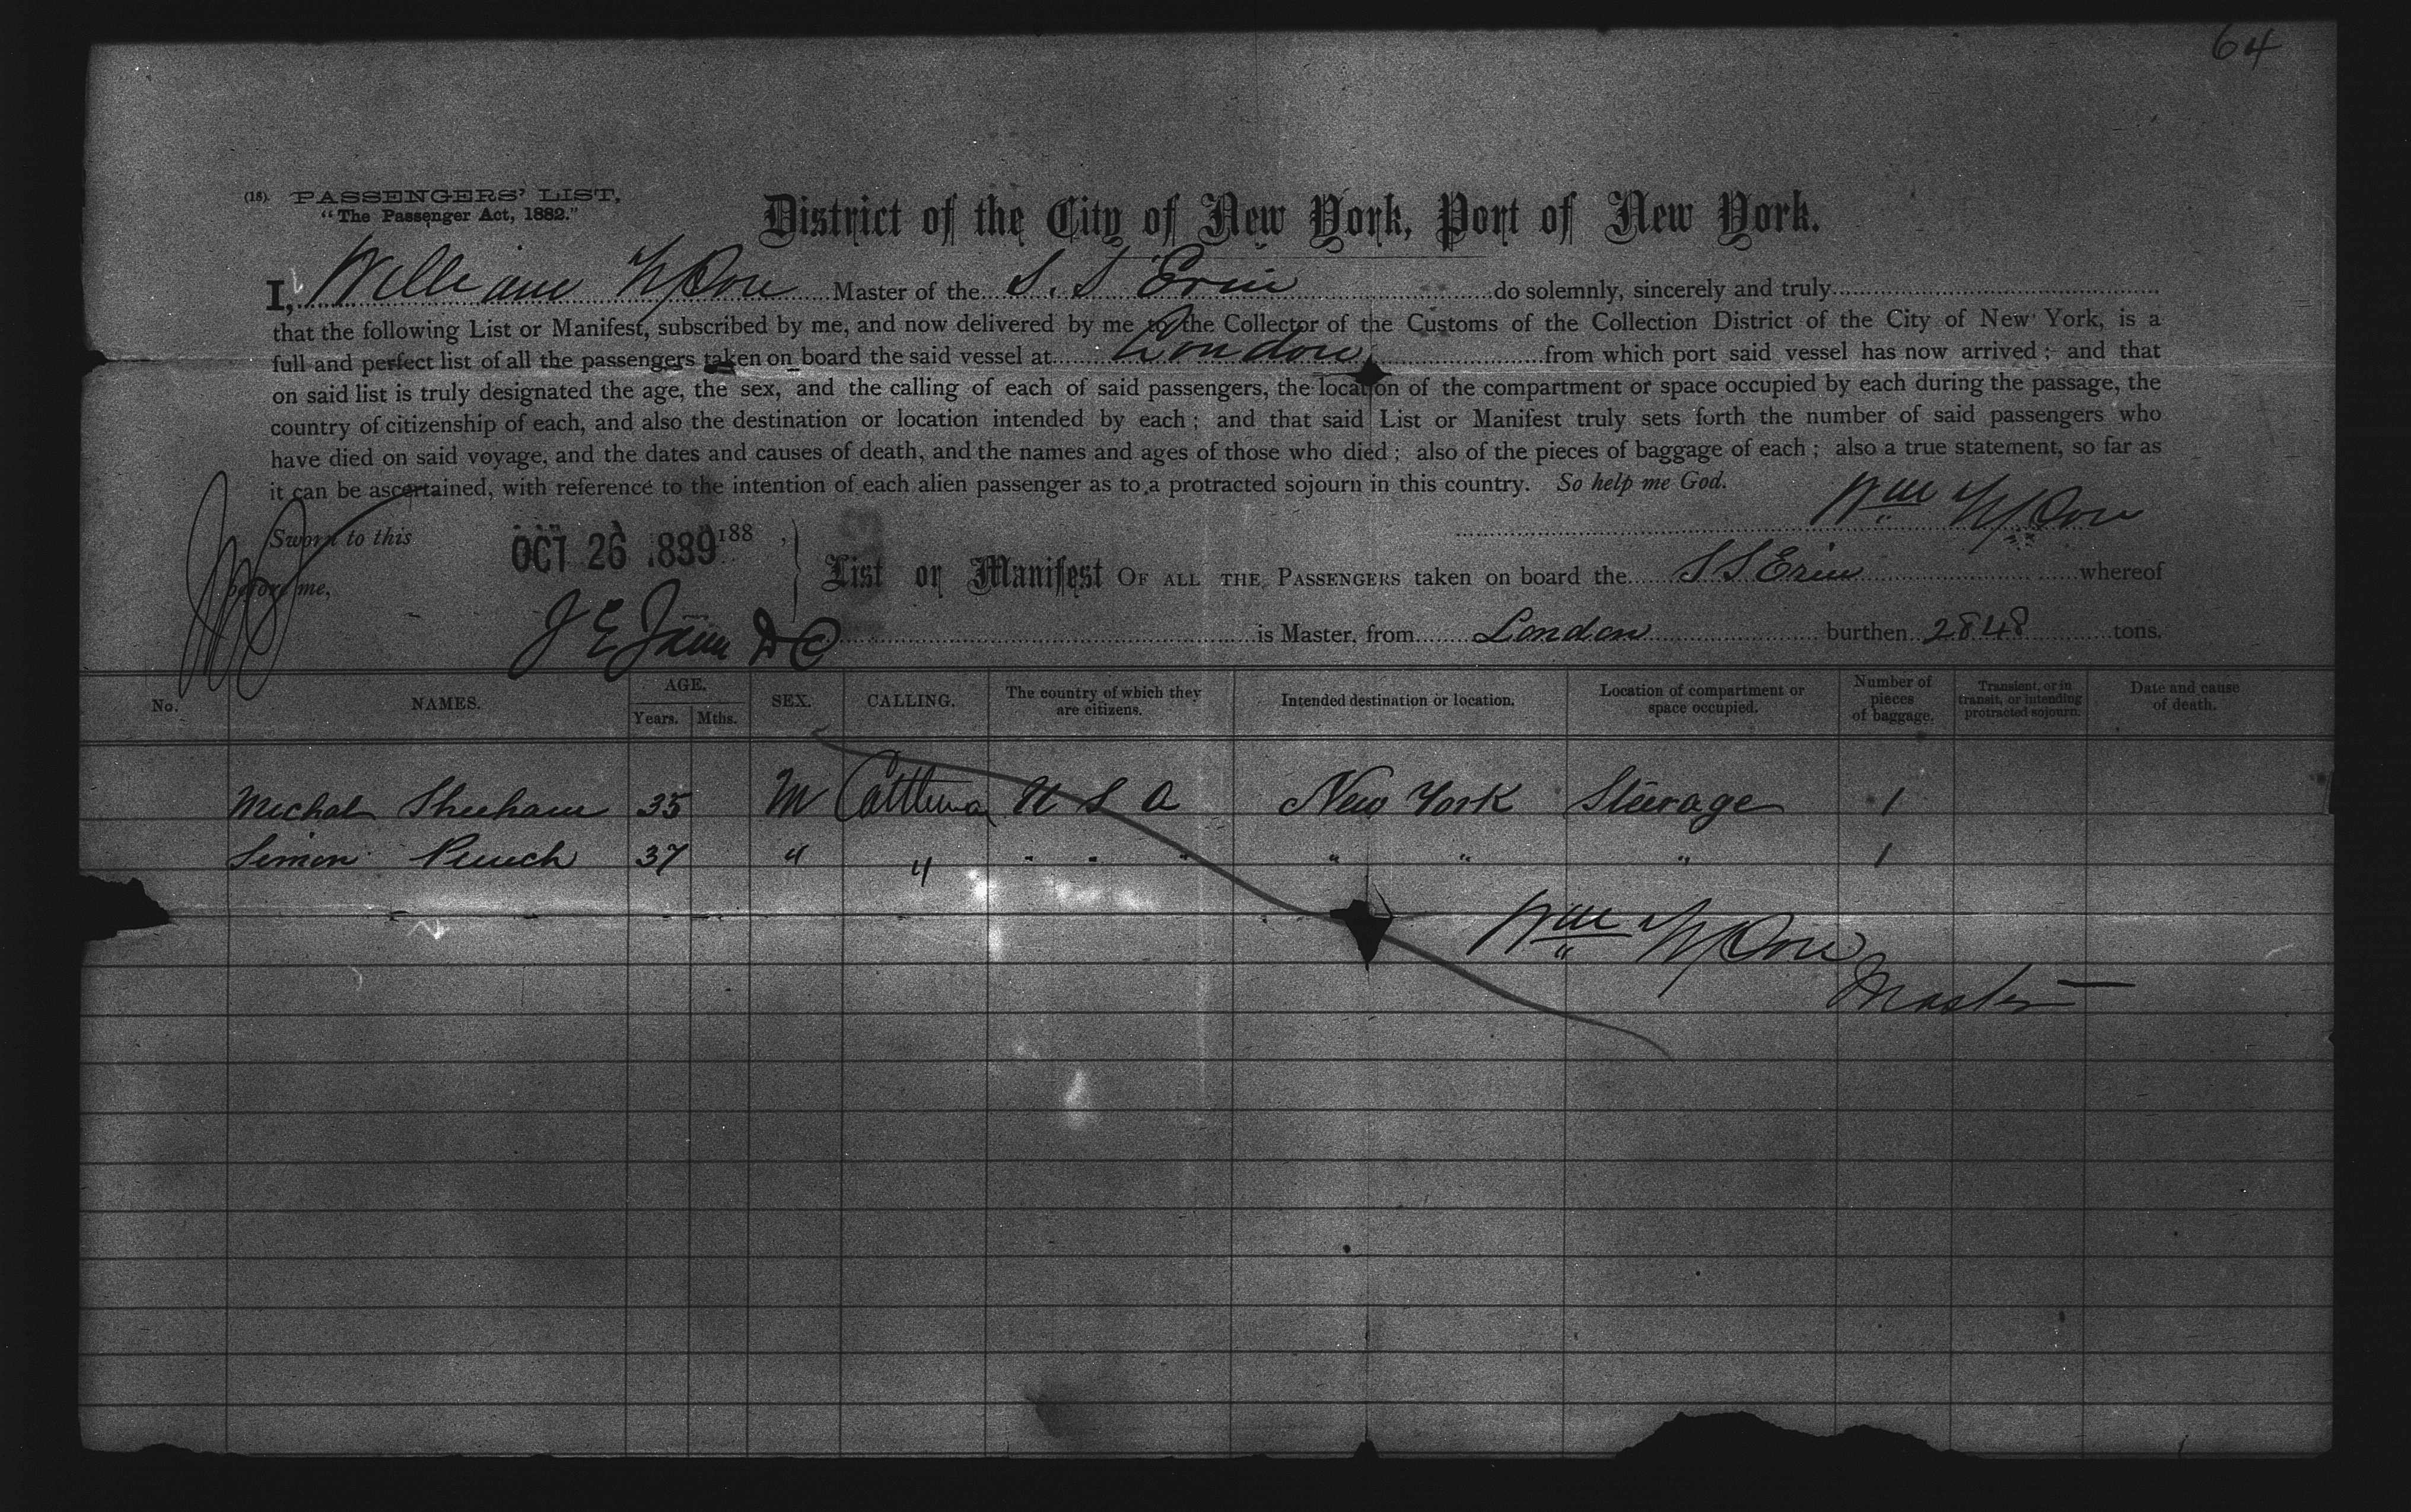 64
(18). PASSENGERS' LIST,
"The Passenger Act, 1882."
District of the City of New York, Port of New York.
I, William Master of the S. S Erin do solemnly, sincerely and truly
that the following List or Manifest, subscribed by me, and now delivered by me to the Collector of the Customs of the Collection District of the City of New York, is a
full and perfect list of all the passengers taken on board the said vessel at London from which port said vessel has now arrived; and that
on said list is truly designated the age, the sex, and the calling of each of said passengers, the location of the compartment or space occupied by each during the passage, the
country of citizenship of each, and also the destination or location intended by each; and that said List or Manifest truly sets forth the number of said passengers who
have died on said voyage, and the dates and causes of death, and the names and ages of those who died; also of the pieces of baggage of each; also a true statement, so far as
it can be ascertained, with reference to the intention of each alien passenger as to a protracted sojourn in this country. So help me God.
Wm
Sworn to this OCT 26 1889 188 ,
before me,
List or Manifest OF ALL THE PASSENGERS taken on board the S S Erin whereof
J E D C is Master, from London burthen 2848 tons.
No. NAMES. AGE. Years. Mths. SEX. CALLING. The country of which they are citizens. Intended destination or location. Location of compartment or space occupied. Number of pieces of baggage. Transient, or in transit, or intending protracted sojourn. Date and cause of death.
Michal Sheehan 35 M U S A New York Steerage 1
Simon 37 " " " " " " " " 1
Wm
Master